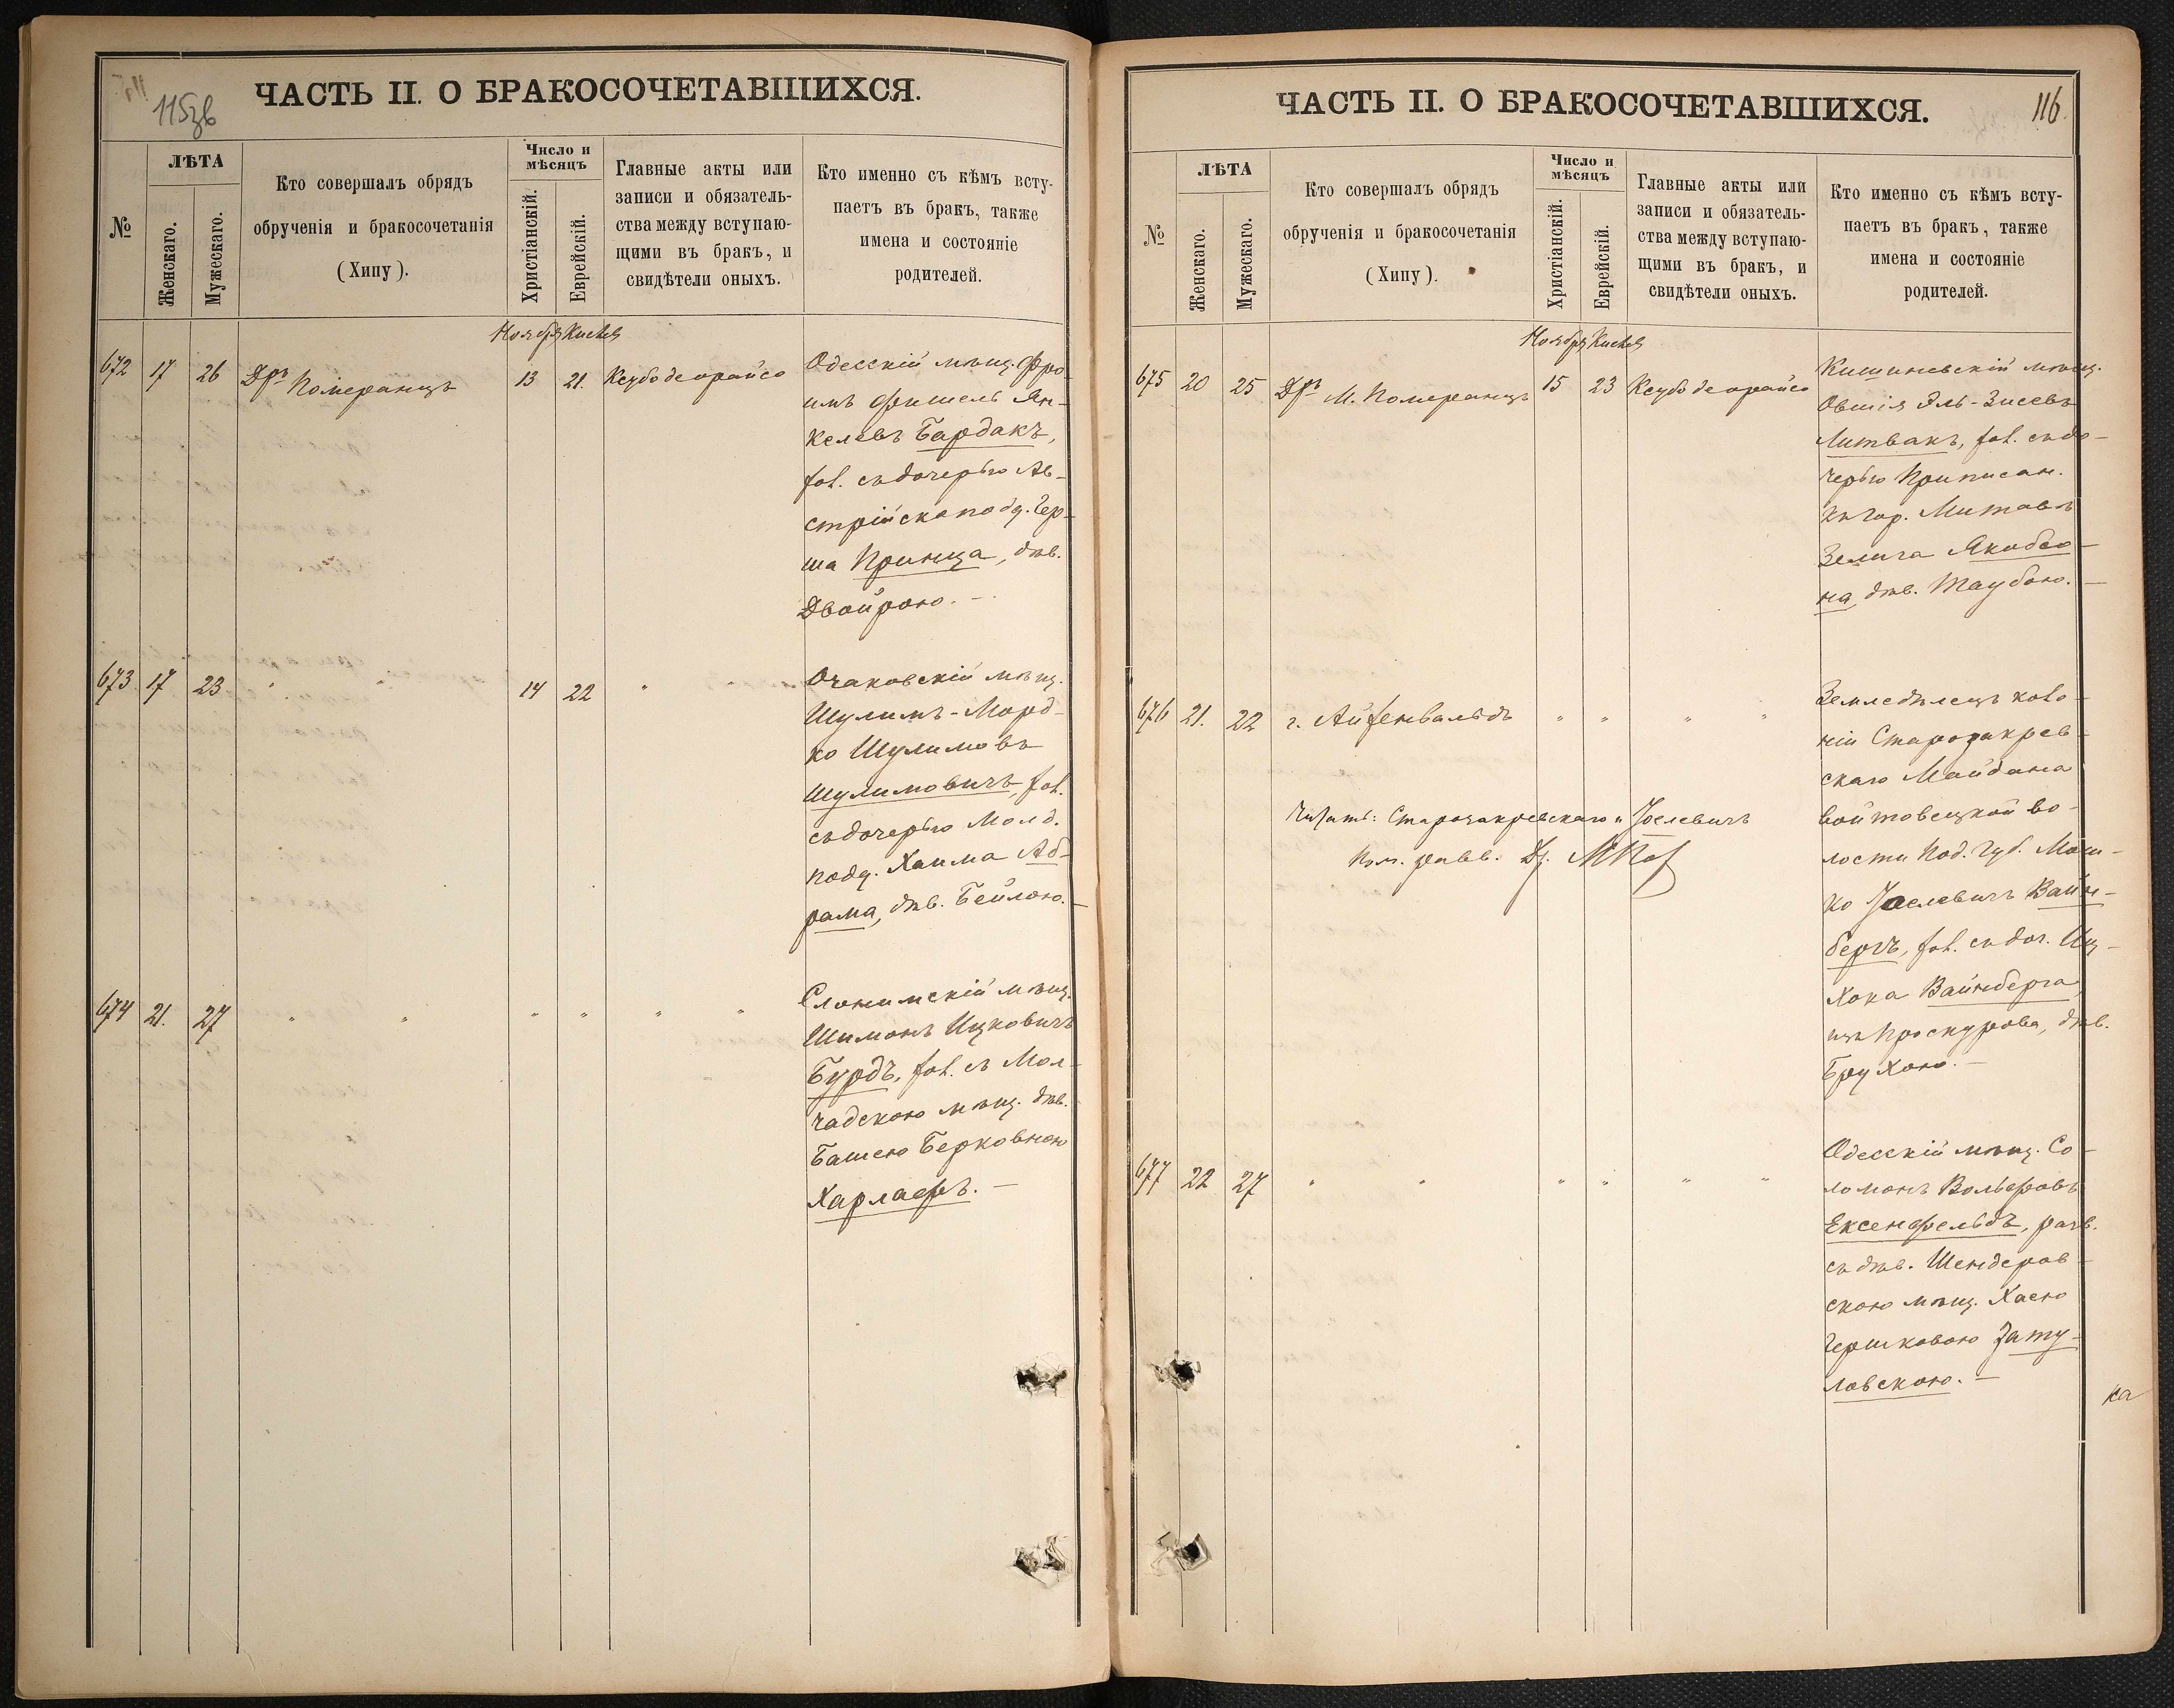 115зв
ЧАСТЬ II. О БРАКОСОЧЕТАВШИХСЯ.
№
ЛѢТА
Женскаго.
Мужескаго.
Кто совершалъ обрядъ
обрученія и бракосочетанія
(Хипу).
Число и
мѣсяцъ
Христіанскій.
Еврейскій.
Главные акты или
записи и обязатель-
ства между вступаю-
щими въ бракъ, и
свидѣтели оныхъ.
Кто именно съ кѣмъ всту-
паетъ въ бракъ, также
имена и состояніе
родителей.
Ноября Кислев
672 17 26 Дръ Померанцъ 13 21. Ксубо деорайсо
Одесскій мѣщ. Фро
имъ Фишель Ян-
келевъ Бардакъ,
хол. съ дочерью Ав-
стрійск. подд. Гер-
ша Принца, дѣв.
Двойрою. –
673 17 23 " " 14 22 " "
Очаковскій мѣщ.
Шулимъ-Морд-
ко Шулимовъ
Шулимовичъ, хол.
съ дочерью Молд.
подд. Хаима Аб-
рама, дѣв. Бейлою. –
674 21. 27 " " " " " "
Слонимскій мѣщ.
Шимонъ Ицковичъ
Бурдъ, хол. съ Мол-
чадскою мѣщ. дѣв.
Башею Берковною
Харлафъ. –
116.
ЧАСТЬ II. О БРАКОСОЧЕТАВШИХСЯ.
№
ЛѢТА
Женскаго.
Мужескаго.
Кто совершалъ обрядъ
обрученія и бракосочетанія
(Хипу).
Число и
мѣсяцъ
Христіанскій.
Еврейскій.
Главные акты или
записи и обязатель-
ства между вступаю-
щими въ бракъ, и
свидѣтели оныхъ.
Кто именно съ кѣмъ всту-
паетъ въ бракъ, также
имена и состояніе
родителей.
Ноября Кислев
675 20 25 Дръ М. Померанцъ 15 23 Ксубо деорайсо
Кишиневскій мѣщ.
Овшія Эль-Зисевъ
Литвакъ, хол. съ до-
черью приписан.
къ гор. Митавѣ
Зелига Якобсо-
на, дѣв. Таубою. –
676 21. 22 г. Айзенвальдъ " " " "
Земледѣлецъ коло-
ніи Старозакрев-
скаго Майдана
Войтовецкой во-
лости Под. губ. Мош-
ко Іоселевичъ Вайн-
бергъ, хол. съ доч. Иц-
хока Вайнберга,
изъ Проскурова, дѣв.
Брухою. –
Читать: Старозакревскаго и Іоселевичъ
Пом. равв. Др.
677 22 27 " " " " " "
Одесскій мѣщ. Со-
ломонъ Вольфовъ
Ексенфельдъ, разв.
съ дѣв. Шендеров-
скою мѣщ. Хаею
Гершковою Зату-
ловскою. –
ка